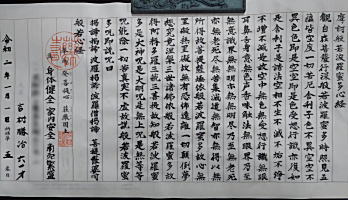 摩訶般若波羅蜜多心経
観自在菩薩行深般若波羅蜜多時照見五
蘊皆空度一切苦厄舎利子色不異空空不
異色色即是空空即是色受想行識亦復如
是舎利子是諸法空相不生不滅不垢不浄
不増不減是故空中無色無受想行識無眼
耳鼻舌身意無色声香味触法無眼界乃至
無意識界無無明亦無無明尽乃至無老死
亦無老死尽無苦集滅道無智亦無得以無
所得故菩提薩埵依般若波羅蜜多故心無
罣礙無罣礙故無有恐怖遠離一切顛倒夢
想究竟涅槃三世諸仏依般若波羅蜜多故
得阿耨多羅三藐三菩提故知般若波羅蜜
多是大神呪是大明呪是無上呪是無等等
呪能除一切苦真実不虚故説般若波羅蜜
多呪即説呪曰
羯諦羯諦波羅羯諦波羅僧羯諦菩提薩婆訶
般若心経
発菩提心 荘厳国土
身体健全 家内安全 商売繁盛
令和二年一月一日
吉村勝治 六一才
五